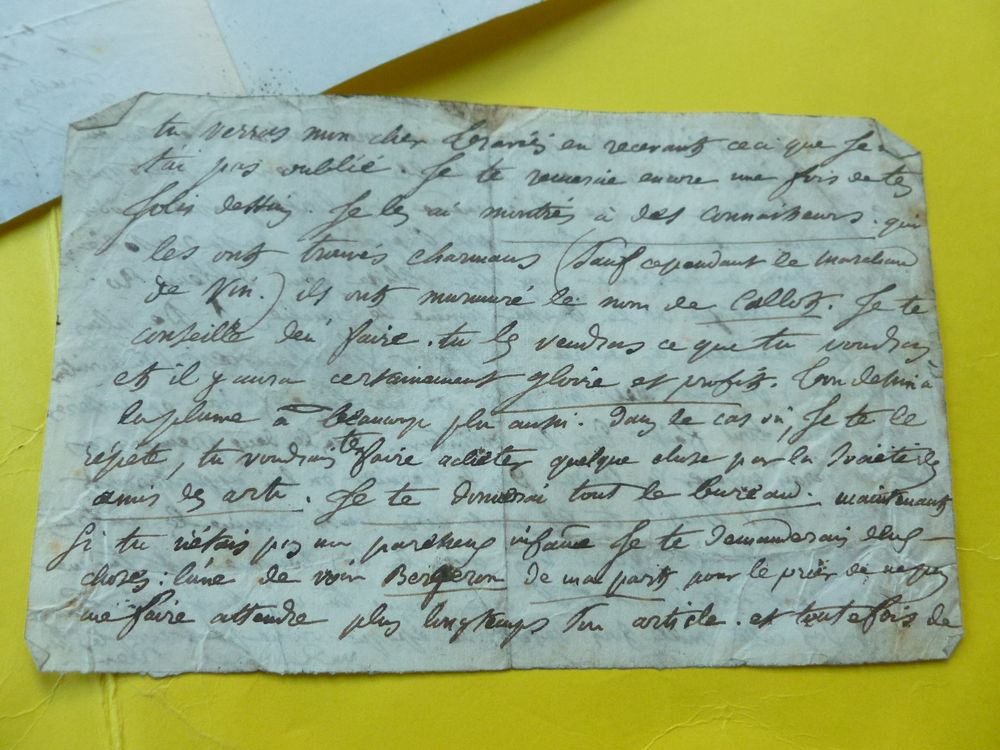 tu verras mon cher en recevant ceci que je n
t'ai pas oublié. Je te remercie encore une fois de tes
jolis dessins. Je les ai montrés à des connaisseurs. qui
les ont trouvés charmans (sauf cependant le marchand
de vin.) ils ont murmuré le nom de Callot. Je te
conseille d'en faire. tu les vendras ce que tu voudras
et il y aura certainement gloire et profit. ton dessin à
la plume a beaucoup plu aussi. Dans le cas où, Je te le
répète, tu voudrais te faire acheter quelque chose par la Société des
amis des arts. Je te donnerai tout le bureau. maintenant
Si tu n'étais pas un paresseux infame Je te demanderais deux
choses: l'une de voir Bergeron de ma part pour le prier de ne pas
me faire attendre plus longtemps son article. et toutefois de